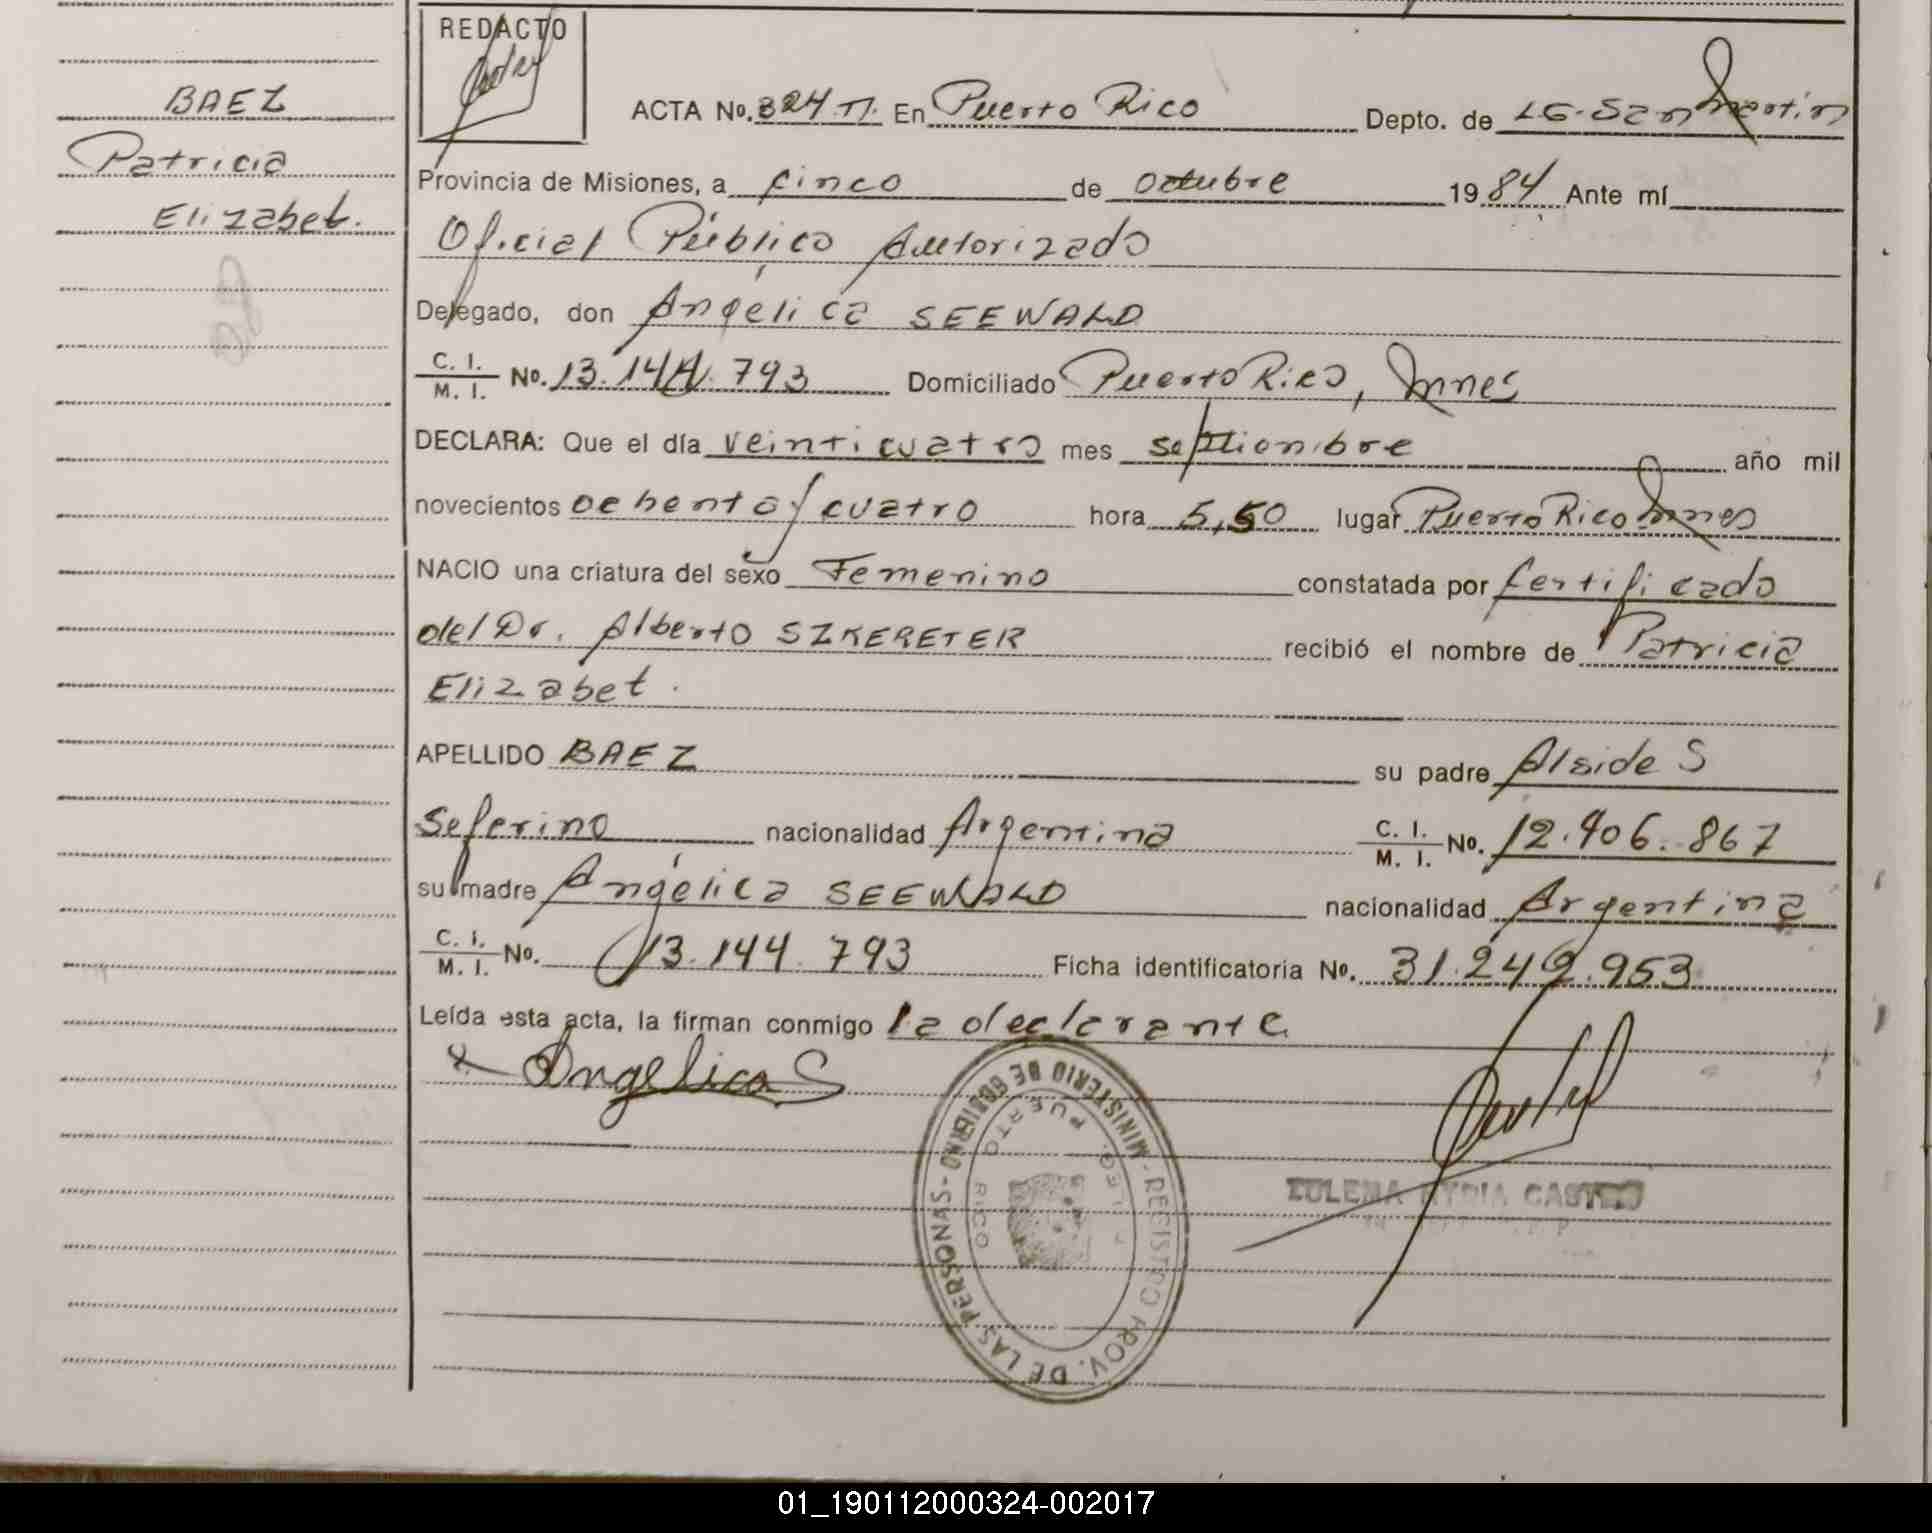 BAEZ
Patricia
Elizabet.
REDACTO
ACTA No. 324 En Puerto Rico Depto. de LG. San Martín
Provincia de Misiones, a cinco de octubre 1984 Ante mí
Oficial Público Autorizado
Delegado, don Angélica SEEWALD
C. I. M. I. No. 13.144.793 Domiciliado Puerto Rico, Mnes
DECLARA: Que el día veinticuatro mes septiembre año mil
novecientos ochenta y cuatro hora 5,50 lugar Puerto Rico Mnes
NACIO una criatura del sexo Femenino constatada por certificado
del Dr. Alberto SZKERETER recibió el nombre de Patricia
Elizabet.
APELLIDO BAEZ su padre Alside S
Seferino nacionalidad Argentina C. I. M. I. No. 12.406.867
su madre Angélica SEEWALD nacionalidad Argentina
C. I. M. I. No. 13.144.793 Ficha identificatoria No. 31.242.953
Leída esta acta, la firman conmigo la declarante
Angelica S
MINISTERIO DE GOBIERNO - REGISTRO PROV. DE LAS PERSONAS -
PUERTO RICO
ZULEMA CASTRO
01_190112000324-002017